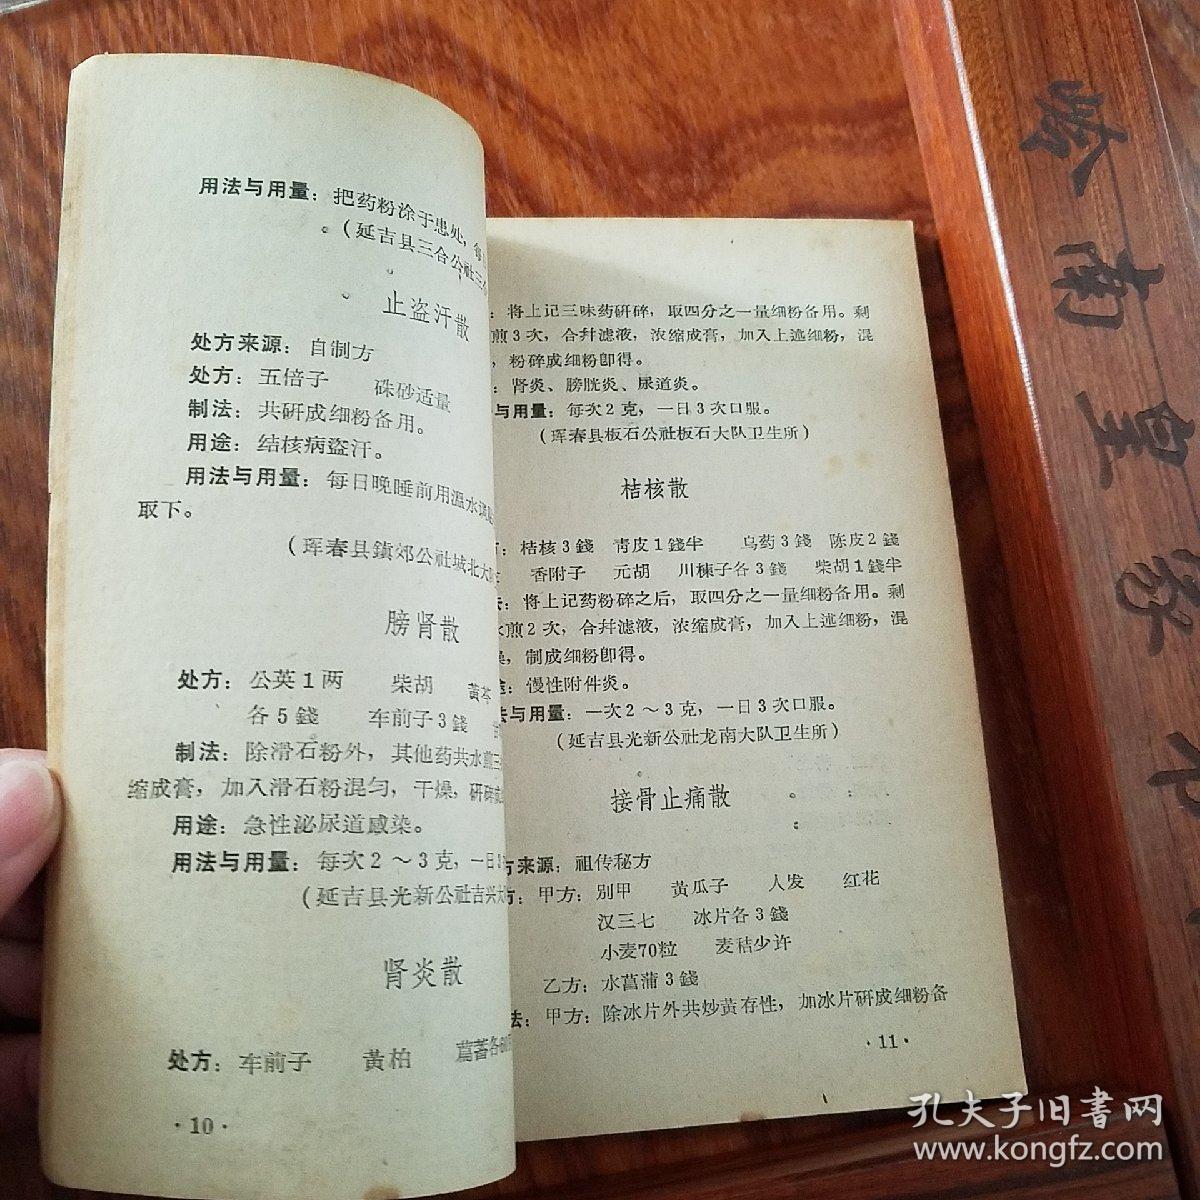 用法与用量：把药粉涂于患处，每
（延吉县三合公社三
止盗汗散
处方来源：自制方
处方：五倍子　硃砂适量
制法：共研成细粉备用。
用途：结核病盗汗。
用法与用量：每日晚睡前用温水调
取下。
（珲春县鎮郊公社城北大队
膀肾散
处方：公英1两　柴胡　黄芩
各5錢　车前子3錢
制法：除滑石粉外，其他药共水煎三
缩成膏，加入滑石粉混匀，干燥，研碎
用途：急性泌尿道感染。
用法与用量：每次2～3克，一日3
（延吉县光新公社吉兴大
肾炎散
处方：车前子　黄柏　萹蓄各60
·10·
：将上记三味药研碎，取四分之一量细粉备用。剩
煎3次，合幷滤液，浓缩成膏，加入上述细粉，混
，粉碎成细粉卽得。
：肾炎、膀胱炎、尿道炎。
与用量：每次2克，一日3次口服。
（珲春县板石公社板石大队卫生所）
桔核散
方：桔核3錢　靑皮1錢半　乌药3錢　陈皮2錢
香附子　元胡　川楝子各3錢　柴胡1錢半
法：将上记药粉碎之后，取四分之一量细粉备用。剩
水煎2次，合幷滤液，浓缩成膏，加入上述细粉，混
燥，制成细粉卽得。
途：慢性附件炎。
法与用量：一次2～3克，一日3次口服。
（延吉县光新公社龙南大队卫生所）
接骨止痛散
方来源：祖传秘方
方：甲方：别甲　黄瓜子　人发　红花
汉三七　冰片各3錢
小麦70粒　麦秸少许
乙方：水菖蒲3錢
法：甲方：除冰片外共炒黄存性，加冰片研成细粉备
·11·
孔夫子旧书网
www.kongfz.com